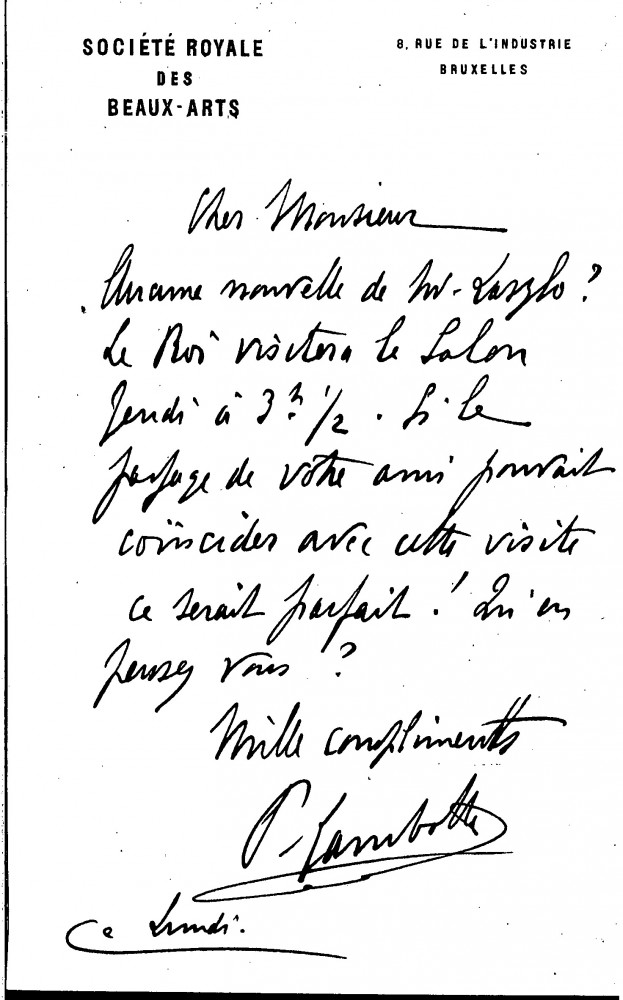 SOCIÉTÉ ROYALE
DES
BEAUX-ARTS
8, RUE DE L'INDUSTRIE
BRUXELLES
Cher Monsieur
Aucune nouvelle de Mr. Laszlo ?
Le Roi visitera le Salon
Jeudi à 3h 1/2. Si le
passage de votre ami pouvait
coïncider avec cette visite
ce serait parfait ! Qu'en
pensez vous ?
Mille compliments
P. Lambotte
Ce Lundi.